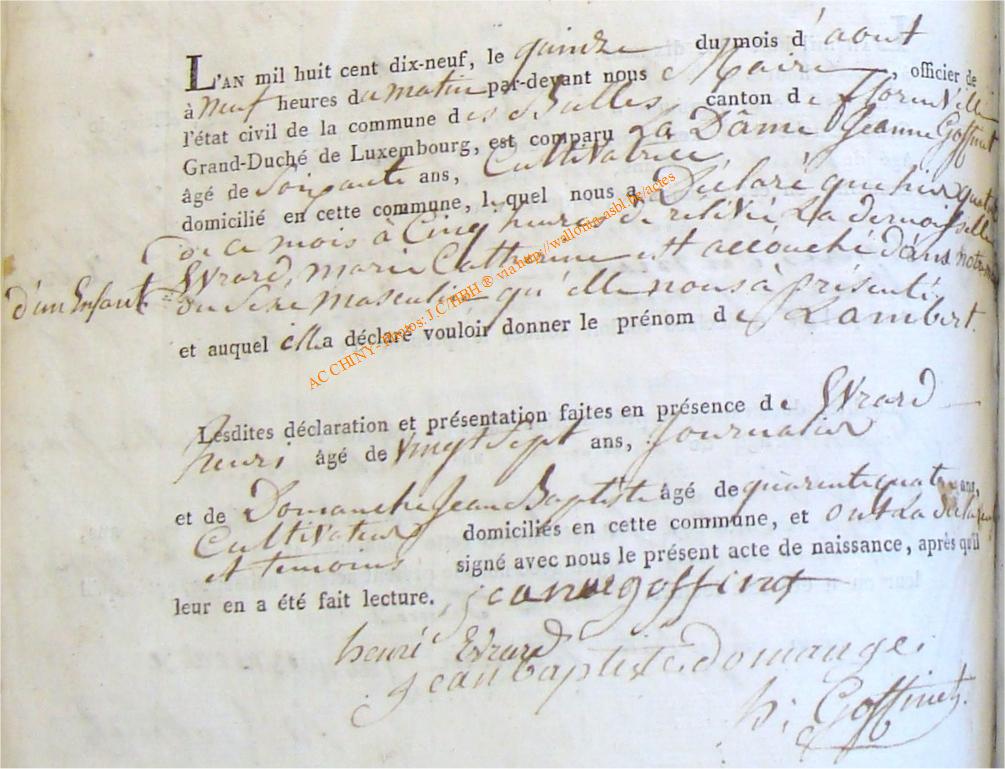 L'AN mil huit cent dix-neuf, le quinze du mois d'aout
à neuf heures du matin par-devant nous Maire, officier de
l'état civil de la commune des Bulles, canton de florenville
Grand-Duché de Luxembourg, est comparu La Dâme Jeanne Goffinet
âgé de Soixante ans, Cultivatrice,
domicilié en cette commune, lequel nous a Déclaré que hier quatorze
de ce mois à Cinq heures de relevée La demoiselle
Evrard, marie Catherine est accouché dans notre
d'un Enfant du Sexe masculin qu'elle nous à présenté
et auquel elle a déclaré vouloir donner le prénom de Lambert.
Lesdites déclaration et présentation faites en présence de Evrard
henri âgé de vingt Sept ans, Journalier
et de Domanche Jean Baptiste âgé de quarente quatre ans,
Cultivateur domiciliés en cette commune, et ont La
et temoins signé avec nous le présent acte de naissance, après qu'il
leur en a été fait lecture. jeanne goffinet
henri Evrard
jean baptiste domange
h: Goffinet.
AC CHINY - Photos: J.C/HBH ® via http://wallonia-asbl.be/actes